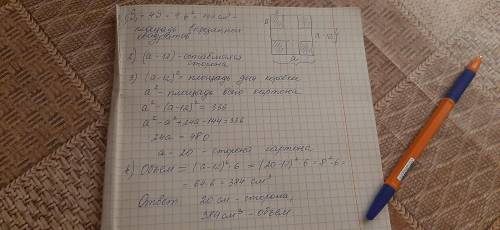 4·6² = 144 см² -
площадь вырезанной
квадратов
2) (a - 12) - оставшаяся
сторона
3) (a - 12)² - площадь дна коробки
a² - площадь всего картона
a² - (a - 12)² = 336
a² - a² + 24a - 144 = 336
24a = 480
a = 20 - сторона картона
4) Объем = (a - 12)²·6 = (20 - 12)²·6 = 8²·6 =
= 64·6 = 384 см³
Ответ 20 см - сторона,
384 см³ - объем
a - 12
a